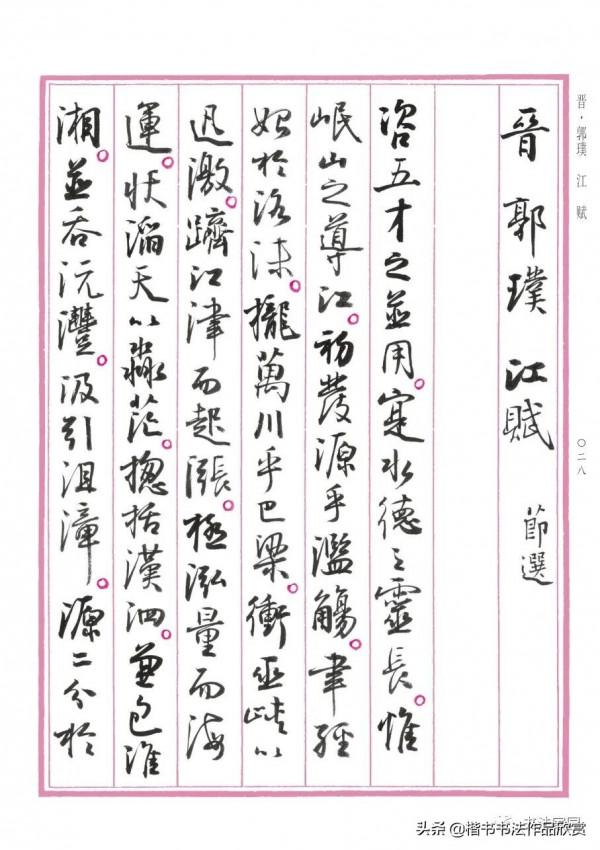 晋·郭璞 江赋
〇二八
晉 郭璞 江賦 節選
咨五才之並用。寔水德之靈長。惟
岷山之導江。初發源乎濫觴。聿經
始於洛沬。攏萬川乎巴梁。衝巫峽以
迅激。躋江津而起漲。極泓量而海
運。狀滔天以淼茫。揔括漢泗。兼包淮
湘。並吞沅澧。汲引沮漳。源二分於
头条 @楷书书法作品欣赏